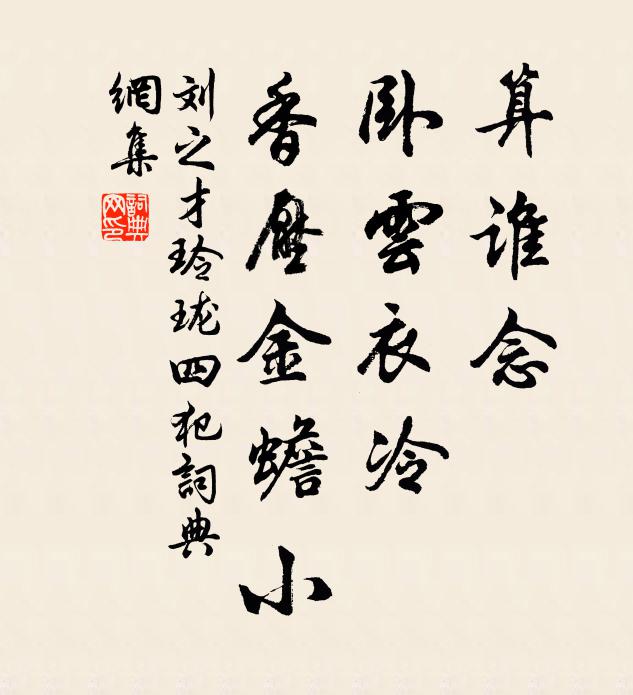 算誰念
卧雲衣冷
香壓金蟾小
刘之才玲珑四犯詞典
網集
詞典网印